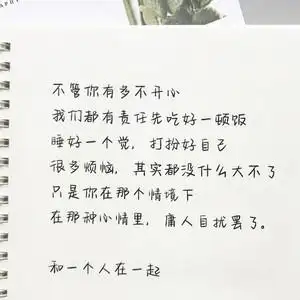 不管你有多不开心
我们都有责任先吃好一顿饭
睡好一个觉，打扮好自己
很多烦恼，其实都没什么大不了
只是你在那个情境下
在那种心情里，庸人自扰罢了。
和一个人在一起